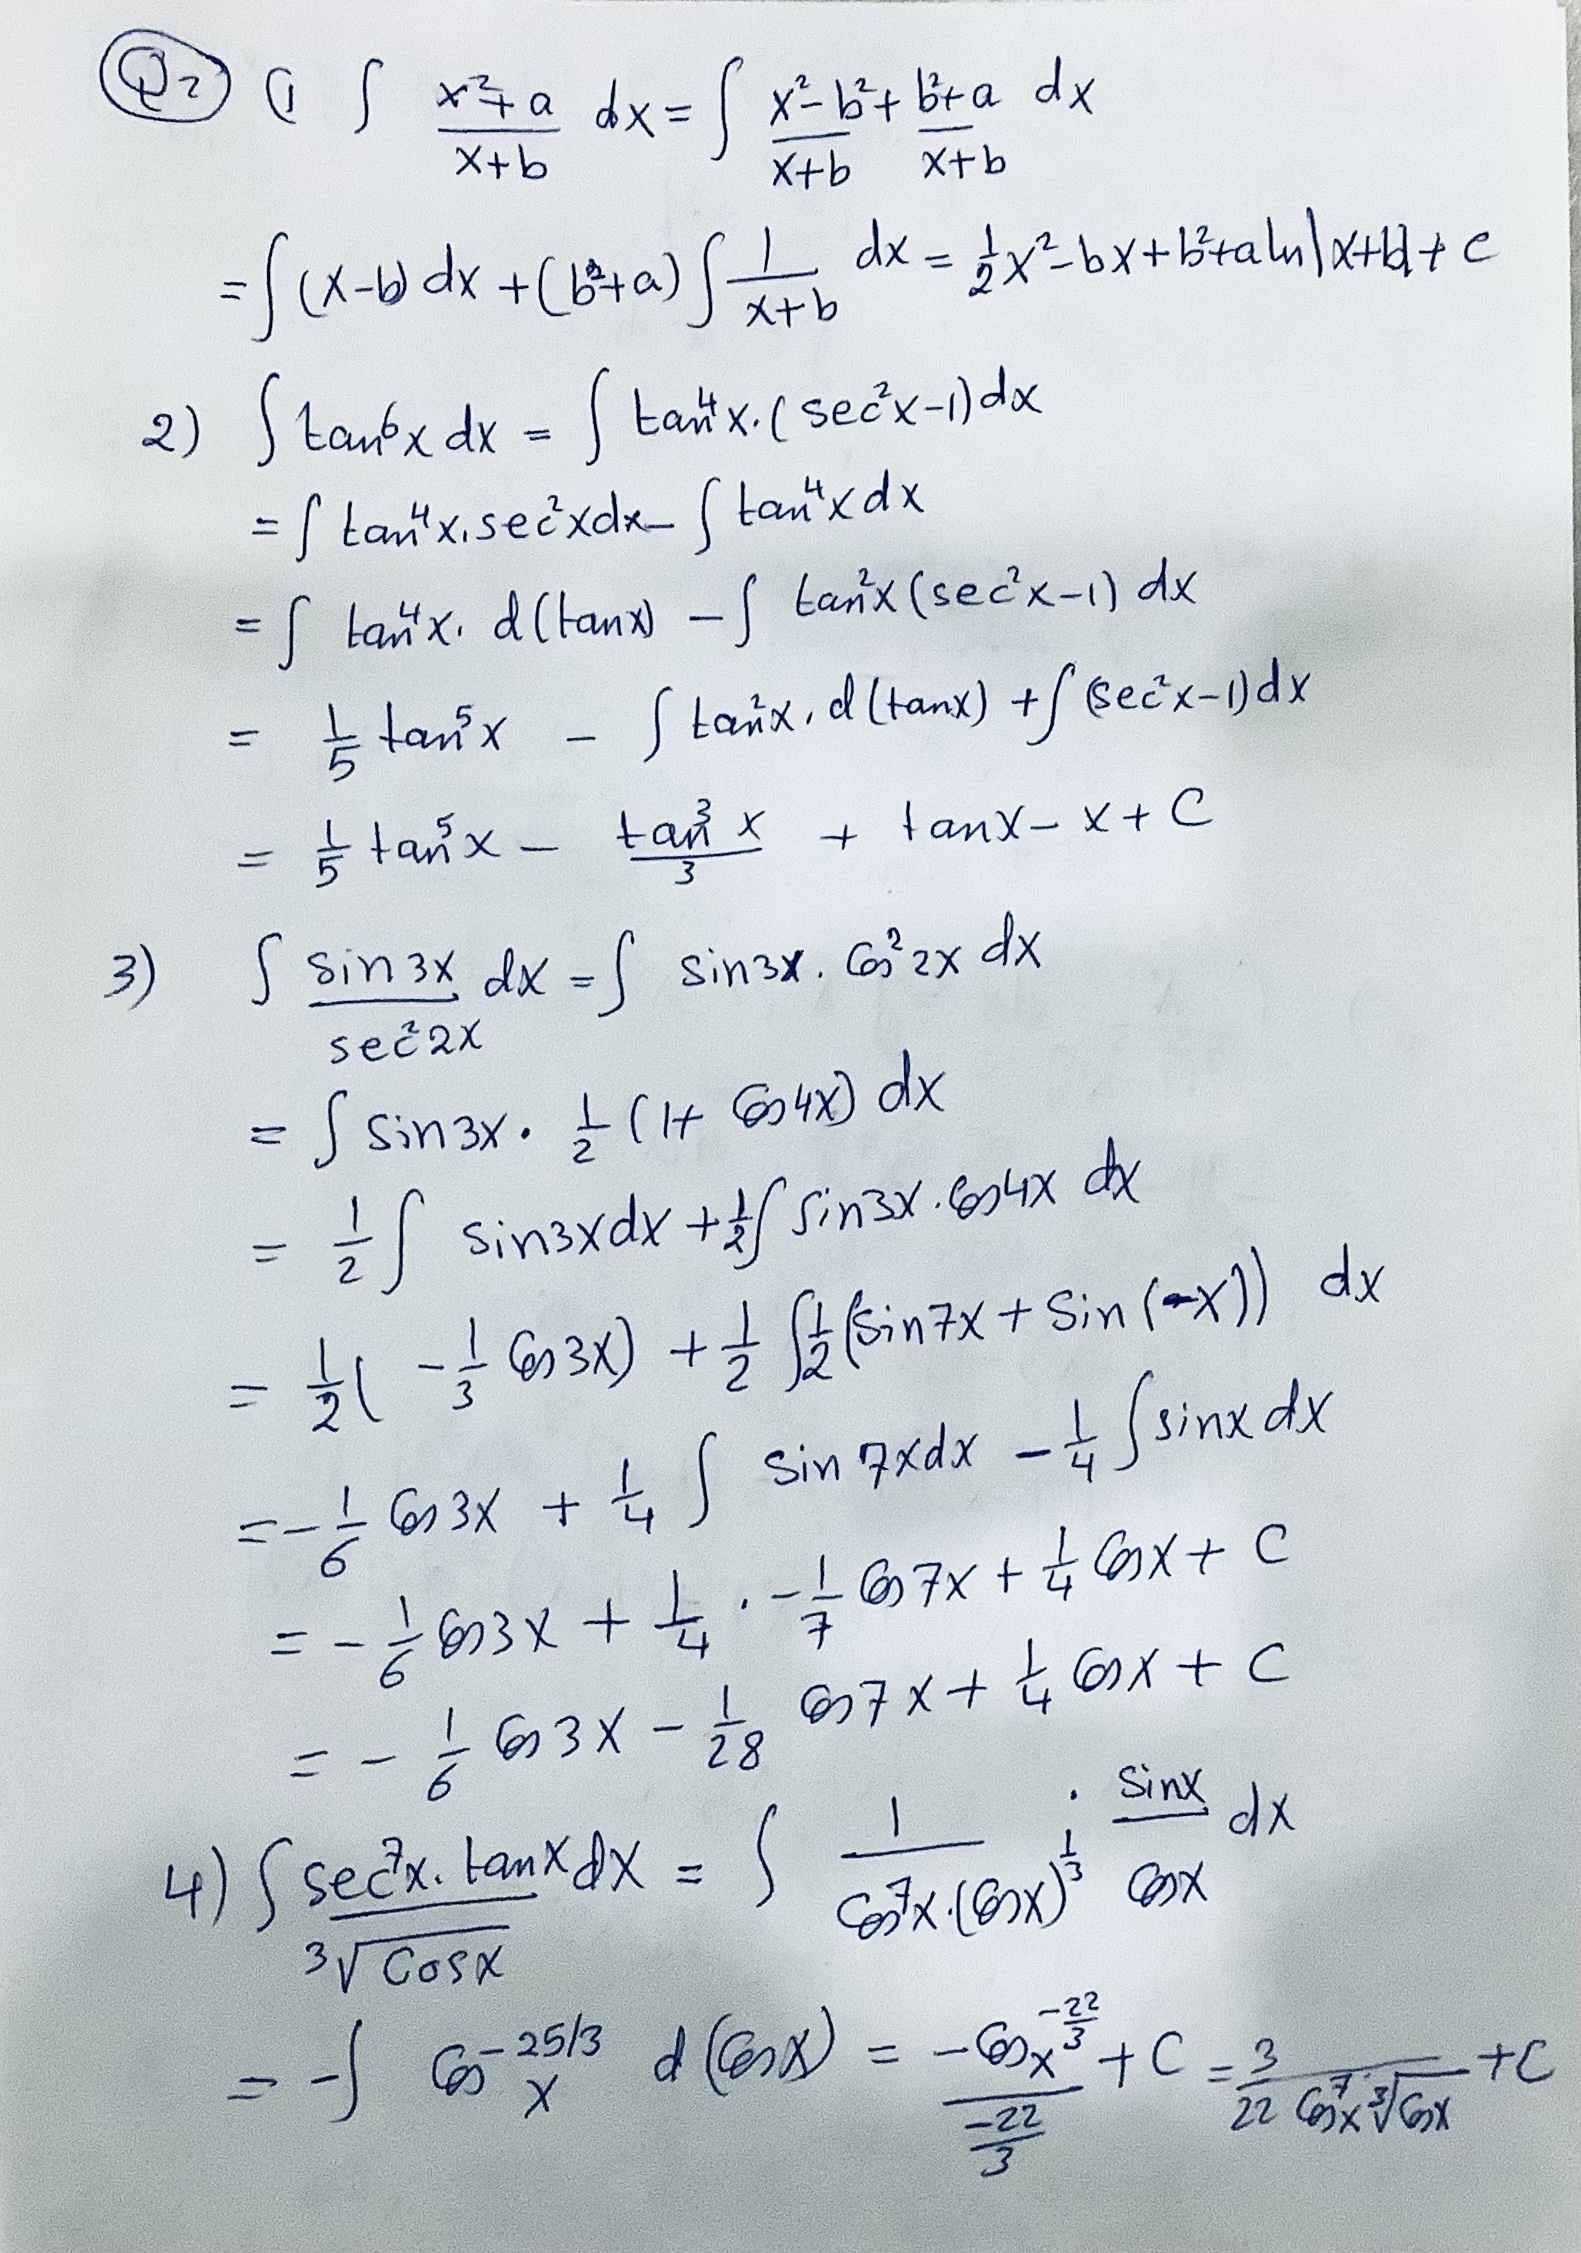 Q2 (1 ∫ (x²+a)/(x+b) dx = ∫ (x²-b²)/(x+b) + (b²+a)/(x+b) dx
= ∫(x-b) dx + (b²+a) ∫ 1/(x+b) dx = 1/2 x² - bx + b²+a ln|x+b| + c
2) ∫ tan⁶x dx = ∫ tan⁴x.(sec²x-1) dx
= ∫ tan⁴x.sec²x dx - ∫ tan⁴x dx
= ∫ tan⁴x. d(tanx) - ∫ tan²x (sec²x-1) dx
= 1/5 tan⁵x - ∫ tan²x. d(tanx) + ∫ (sec²x-1) dx
= 1/5 tan⁵x - tan³x/3 + tanx - x + C
3) ∫ sin3x/sec²2x dx = ∫ sin3x. Cos²2x dx
= ∫ sin3x. 1/2 (1+ Cos4x) dx
= 1/2 ∫ sin3x dx + 1/2 ∫ sin3x. Cos4x dx
= 1/2 ( -1/3 Cos3x) + 1/2 ∫ 1/2 (sin7x + Sin(-x)) dx
= -1/6 Cos3x + 1/4 ∫ sin7x dx - 1/4 ∫ sinx dx
= -1/6 Cos3x + 1/4 . -1/7 Cos7x + 1/4 Cosx + C
= -1/6 Cos3x - 1/28 Cos7x + 1/4 Cosx + C
4) ∫ sec⁷x. tanx/³√Cosx dx = ∫ 1/(Cos⁷x.(Cosx)^(1/3)) . sinx/Cosx dx
= -∫ Cos^(-25/3) x d(Cosx) = -Cos^(-22/3) x/(-22/3) + C = 3/(22 Cos⁷x ³√Cosx) + C